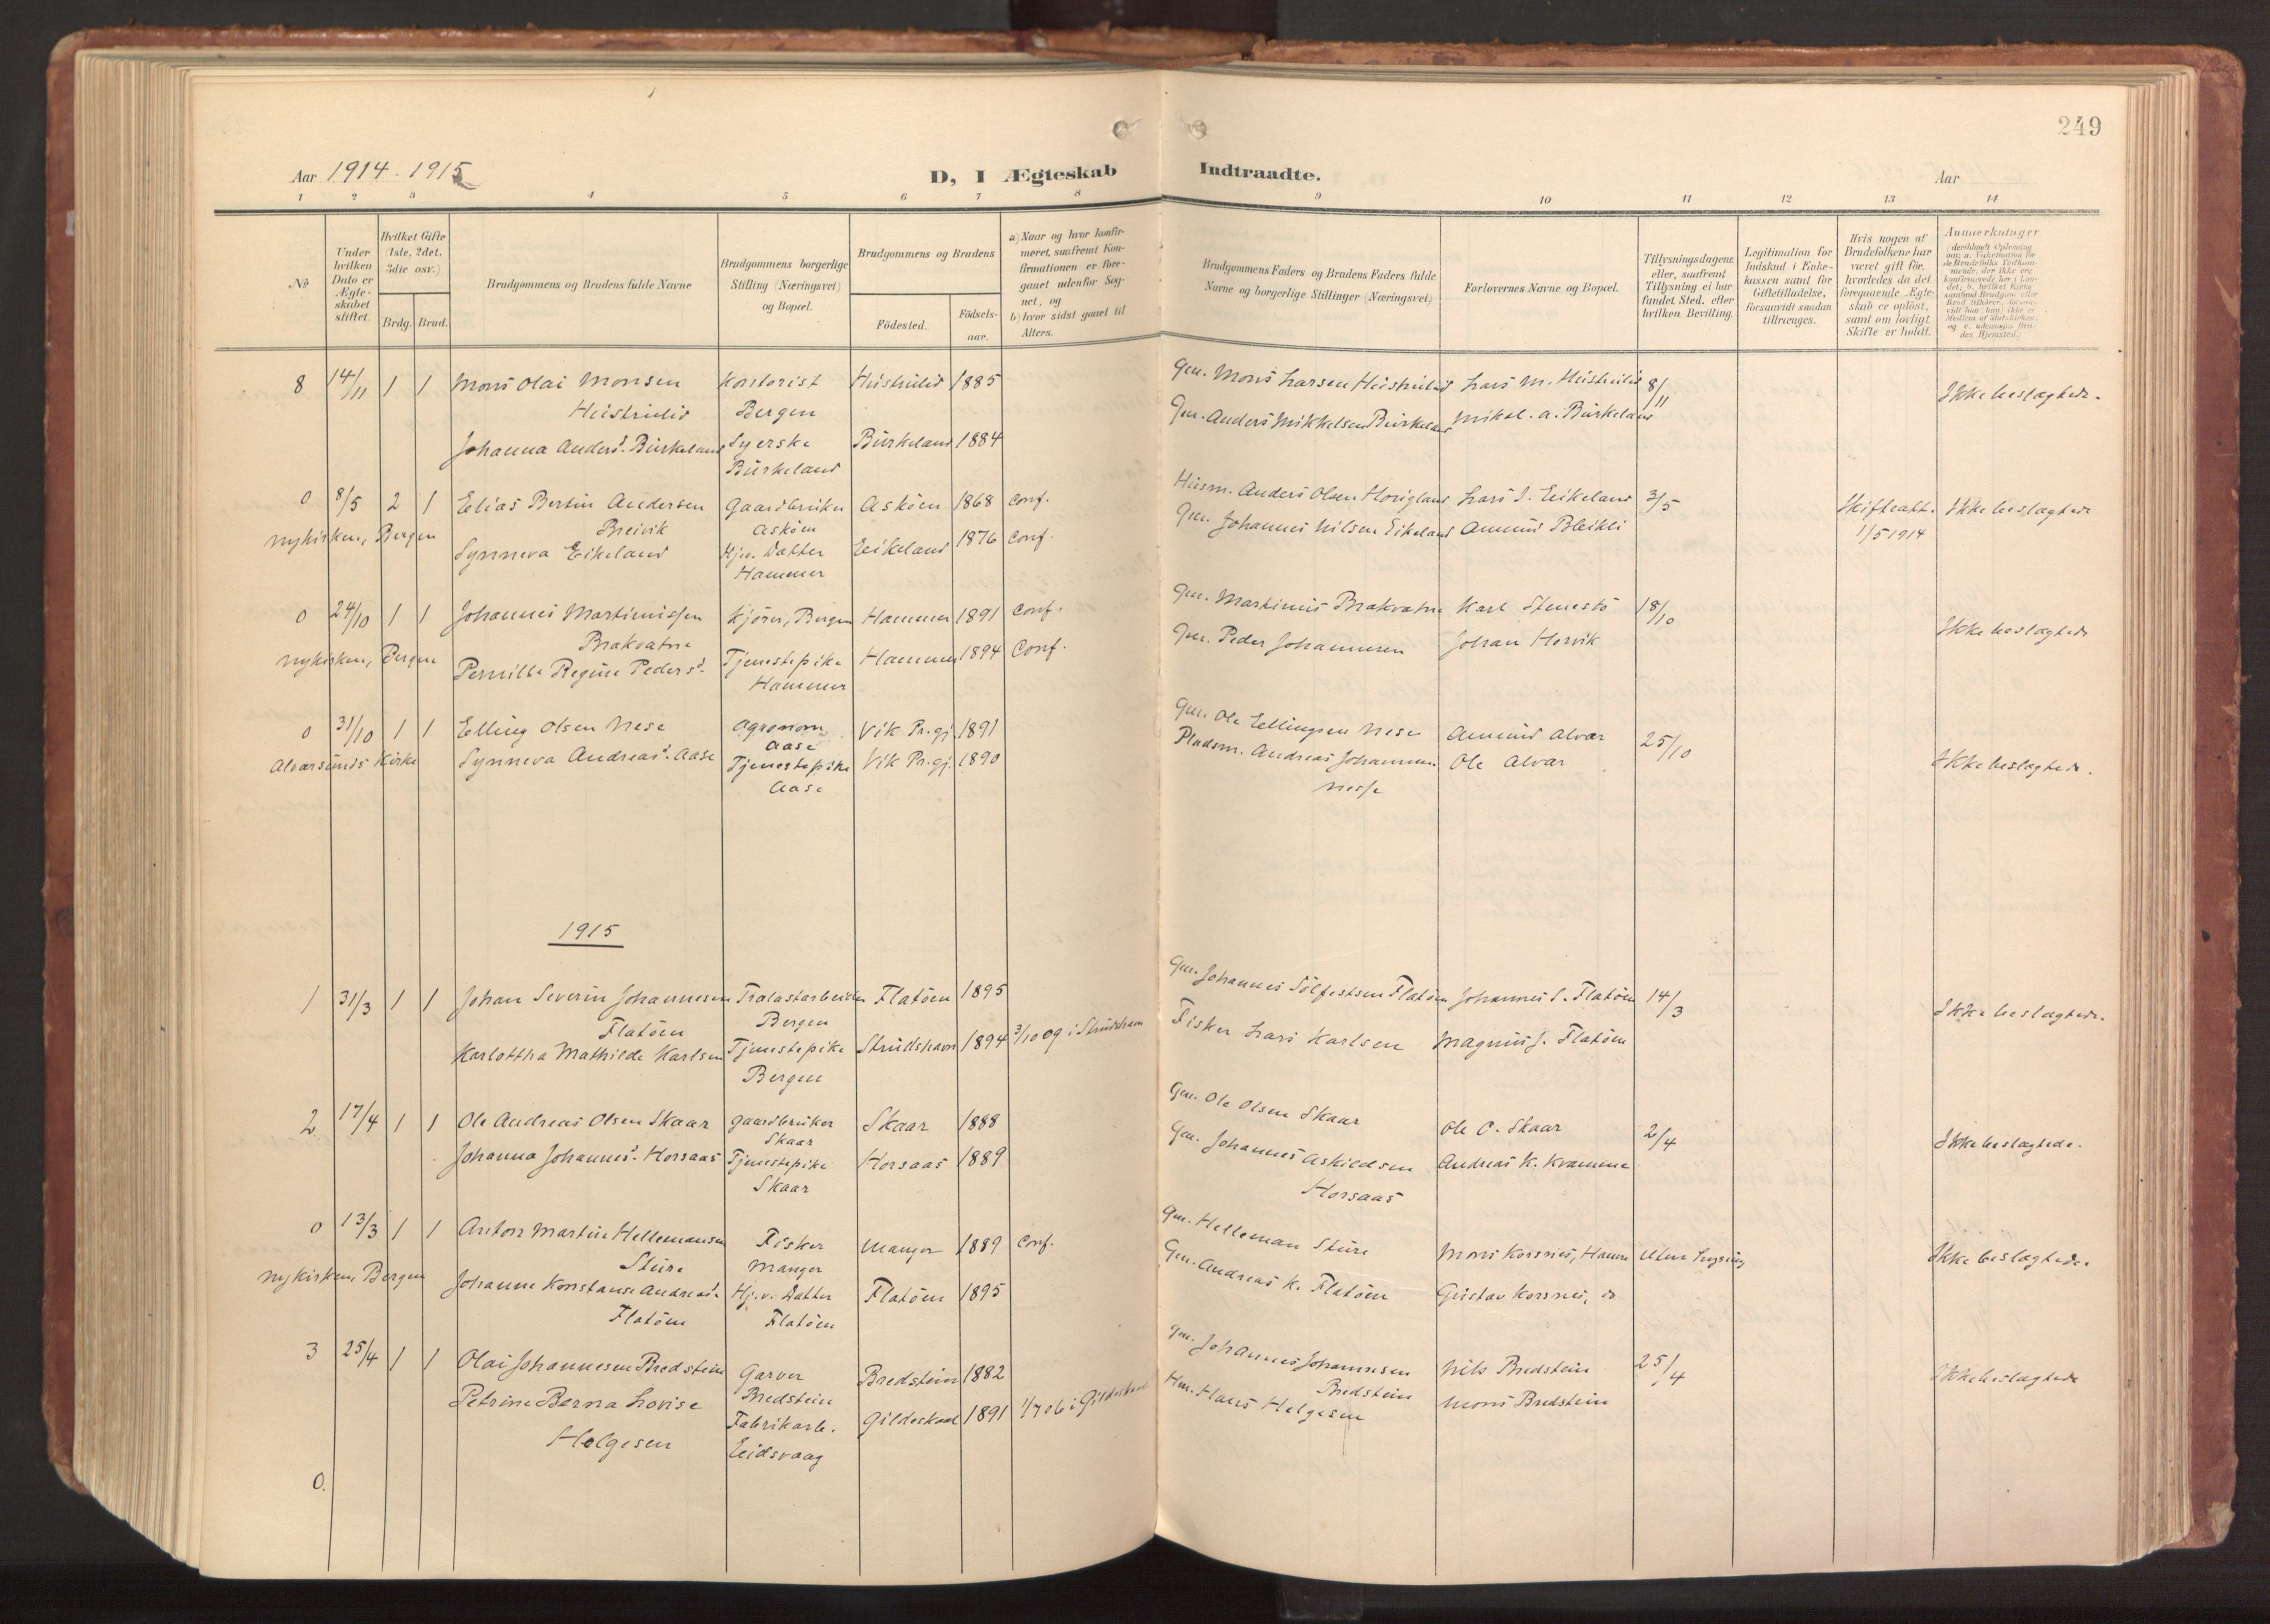 249
Aar 1914-1915
D, I Ægteskab Indtraadte.
Aar
1 2 3 4 5 6 7 8 9 10 11 12 13 14
No
Under hvilken Dato er Ægteskabet stiftet.
Hvilket Gifte (1ste, 2det, 3die osv.)
Brdg. Brud.
Brudgommens og Brudens fulde Navne
Brudgommens borgerlige Stilling (Næringsvei) og Bopæl.
Brudgommens og Brudens
Fødested.
Fødselsaar.
a) Naar og hvor konfirmeret, saafremt Konfirmationen er foregaaet udenfor Sognet, og
b) hvor sidst gaaet til Alters.
Brudgommens Faders og Brudens Faders fulde Navne og borgerlige Stillinger (Næringsvei)
Forlovernes Navne og Bopæl.
Tillysningsdagene eller, saafremt Tillysning ei har fundet Sted, efter hvilken Bevilling.
Legitimation for Indskud i Enkekassen samt for Giftetilladelse, forsaavidt saadan tiltrænges.
Hvis nogen af Brudefolkene har været gift før, hvorledes da det foregaaende Ægteskab er opløst, samt om lovligt Skifte er holdt.
Anmærkninger
8 14/11 1 1 Mons Olai Monsen Kontorist Heistrulid 1885 Gm. Mons Larsen Heistrulid Lars M. Heistrulid 8/11 Ikke beslægtede.
Heistrulid Bergen
Johanna Andersd. Birkeland Syerske Birkeland 1884 Gm. Anders Mikkelsen Birkeland Mikal. A. Birkeland
Birkeland
0 8/5 2 1 Elias Bertin Andersen Gaardbruker Askøen 1868 Conf. Husm. Anders Olsen Horgland Lars J. Eikeland 3/5 Skifteatt. Ikke beslægtede
Nykirken, Bergen Breivik Askøen 1/5 1914
Synneva Eikeland Hjv. Datter Eikeland 1876 Conf. Gm. Johannes Nilsen Eikeland Amund Bleikli
Hammer
0 24/10 1 1 Johannes Martinussen Kjører, Bergen Hammer 1891 Conf. Gm. Martinus Brakvatne Karl Stenestø 18/10 Ikke beslægtede
Nykirken, Bergen Brakvatne
Pernille Regine Pedersd. Tjenestepike Hammer 1894 Conf. Gm. Peder Johannesen Johan Horvik
Hammer
0 31/10 1 1 Elling Olsen Nese Agronom Vik Pr.gj. 1891 Gm. Ole Ellingsen Nese Amund Alvær 25/10 Ikke beslægtede.
Aase
Alversunds Kirke Synneva Andreasd. Aase Tjenestepike Vik Pr.gj. 1890 Pladsm. Andreas Johannesen Ole Alvær
Aase Nesse
1915
1 31/3 1 1 Johan Severin Johannesen Trælastarbeider Flatøen 1895 Gm. Johannes Sølfestsen Flatøen Johannes S. Flatøen 14/3 Ikke beslægtede.
Flatøen Bergen
Karlottha Mathilde Karlsen Tjenestepike Strudshavn 1894 3/10 09 i Strudshavn Fisker Lars Karlsen Magnus J. Flatøen
Bergen
2 17/4 1 1 Ole Andreas Olsen Skaar Gaardbruker Skaar 1888 Gm. Ole Olsen Skaar Ole O. Skaar 2/4 Ikke beslægtede.
Skaar
Johanna Johannesd. Horsaas Tjenestepike Horsaas 1889 Gm. Johannes Askildsen Andreas K. Kvamme
Skaar Horsaas
0 13/3 1 1 Anton Martin Hellemansen Fisker Manger 1889 Conf. Gm. Helleman Sture Mons Korsnes, Hamre Uten Lysning Ikke beslægtede
Sture Manger
Nykirken, Bergen Johanne Konstanse Andreasd. Hj.v. Datter Flatøen 1895 Gm. Andreas K. Flatøen Gustav Korsnes, do
Flatøen Flatøen
3 25/4 1 1 Olai Johannesen Bredstein Garver Bredstein 1882 Gm. Johannes Johannesen Nils Bredstein 25/4 Ikke beslægtede
Bredstein Bredstein
Petrine Berna Lovise Fabrikarb. Gildeskaal 1891 1/7 06 i Gildeskaal Hm. Hans Helgesen Mons Bredstein
Helgesen Eidsvaag
0.